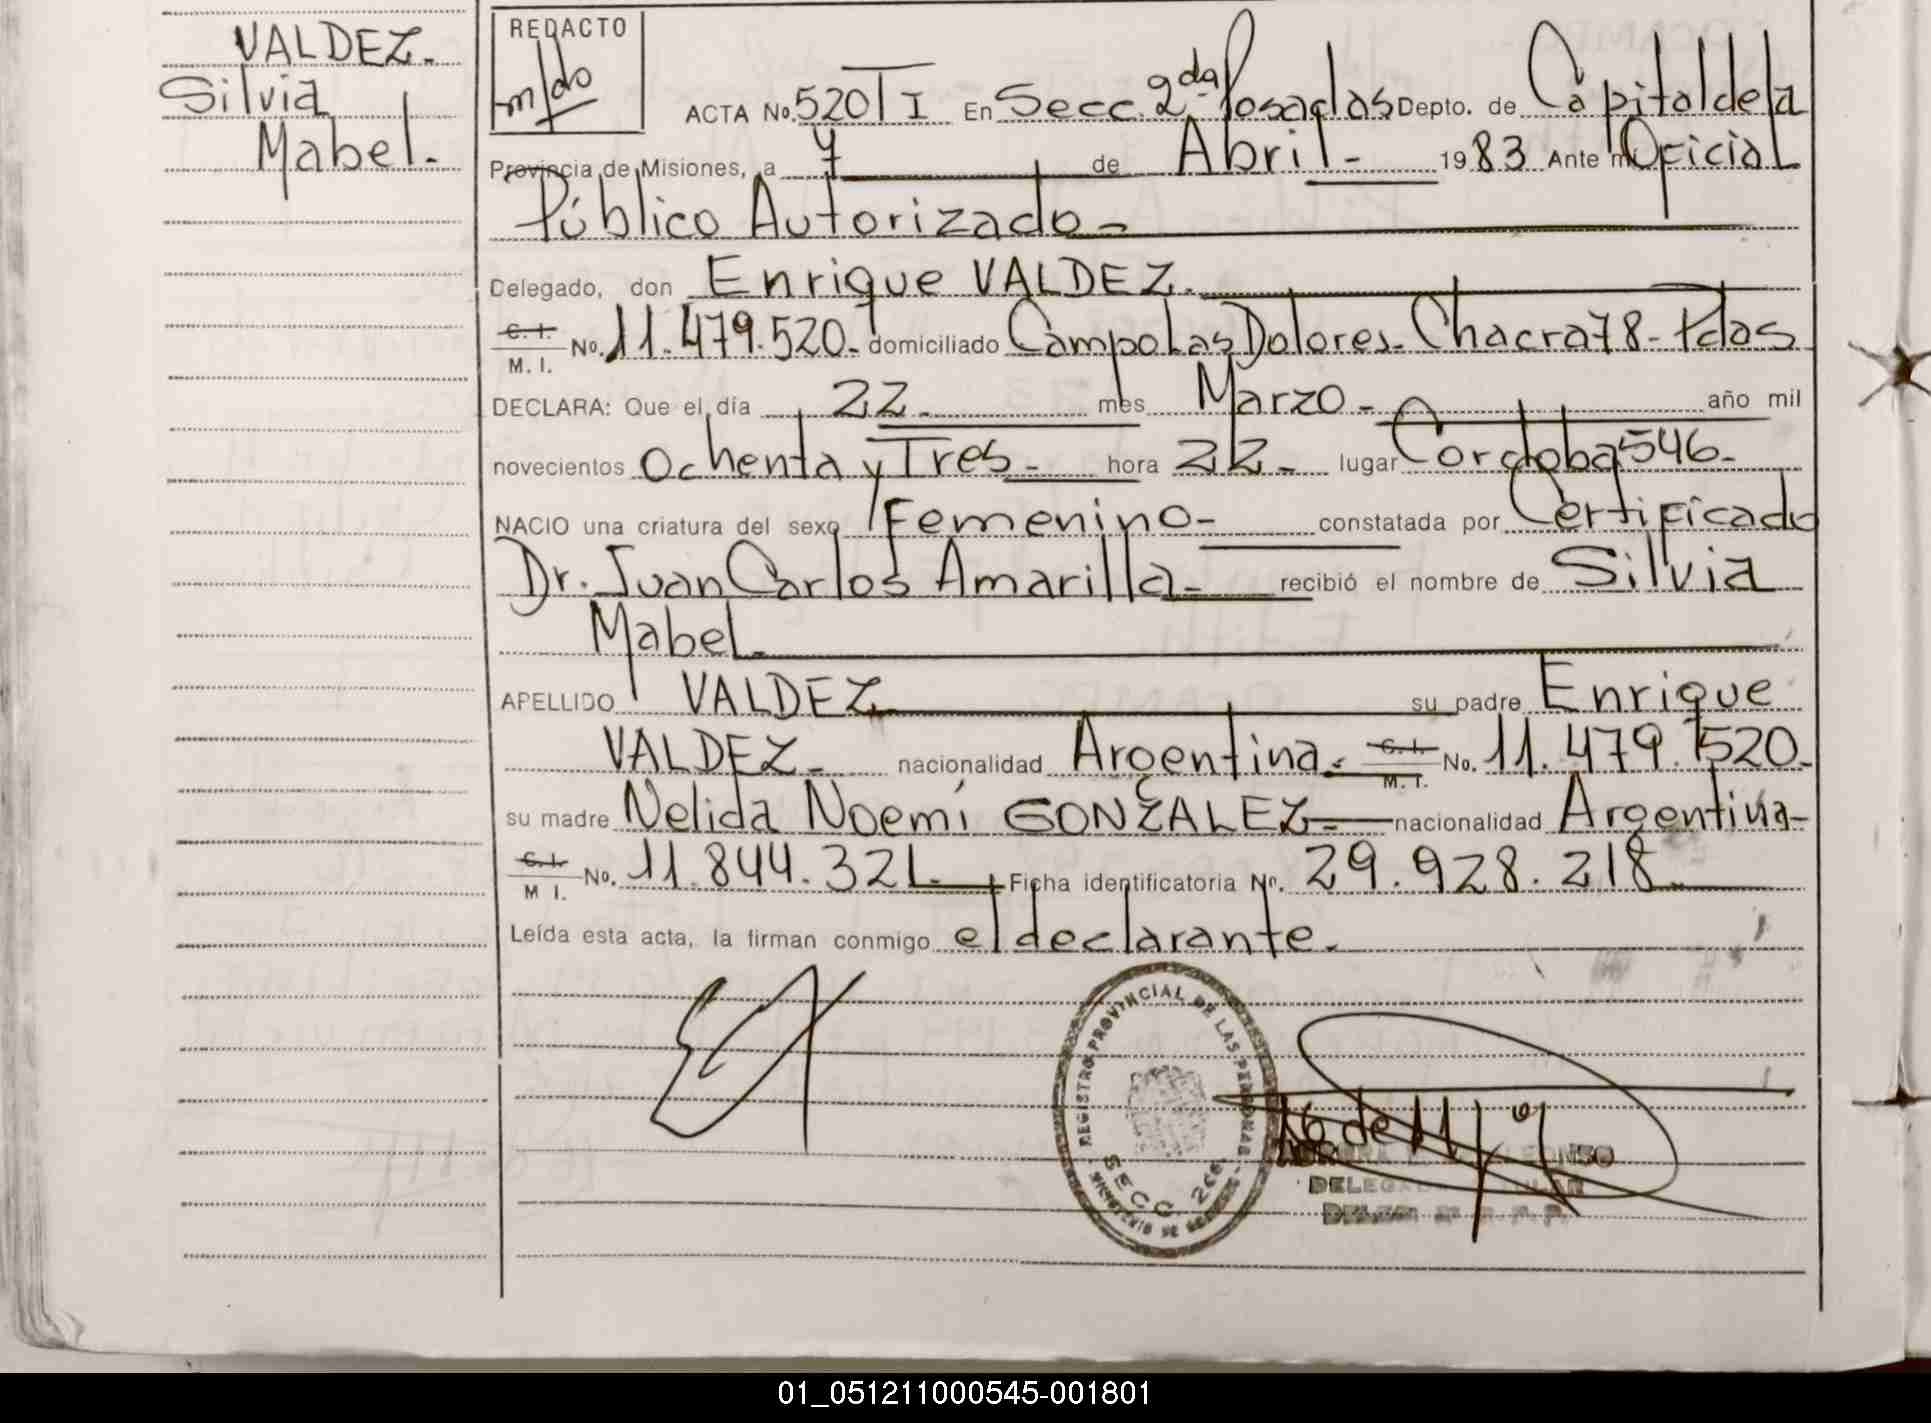 VALDEZ.
Silvia
Mabel.
REDACTO
ACTA No. 520 T I En Secc. 2da Posadas Depto. de Capital de la
Provincia de Misiones, a 4 de Abril - 1983 Ante mi Oficial
Público Autorizado -
Delegado, don Enrique VALDEZ.
C. I. M. I. No. 11.479.520 - domiciliado Campo Las Dolores - Chacra 78 - Pdas
DECLARA: Que el día 22 - mes Marzo - año mil
novecientos Ochenta y Tres - hora 22 - lugar Cordoba 546 -
NACIO una criatura del sexo Femenino - constatada por Certificado
Dr. Juan Carlos Amarilla - recibió el nombre de Silvia
Mabel.
APELLIDO VALDEZ su padre Enrique
VALDEZ - nacionalidad Argentina. C. I. M. I. No. 11.479.520.
su madre Nelida Noemí GONZALEZ - nacionalidad Argentina -
C. I. M I. No. 11.844.321. Ficha identificatoria No. 29.928.218.
Leída esta acta, la firman conmigo el declarante.
REGISTRO PROVINCIAL DE LAS PERSONAS
SECC. 2da.
MINISTERIO DE GOBIERNO
DELEGADO TITULAR
01_051211000545-001801